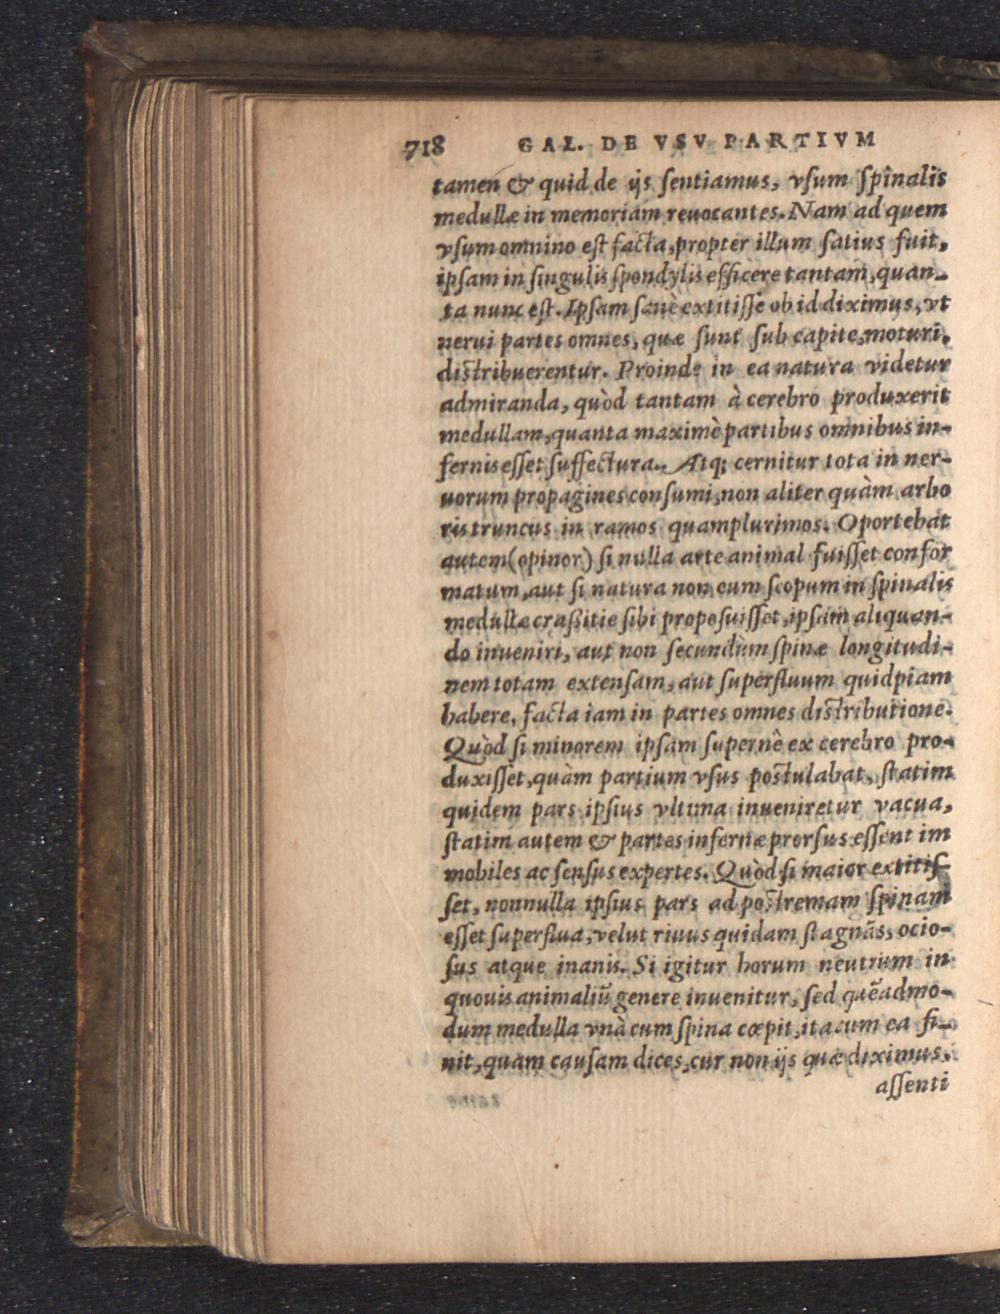 718 GAL. DE VSV PARTIVM
tamen & quid de ijs ſentiamus, vſum ſpinalis
medullæ in memoriam reuocantes. Nam ad quem
vſum omnino eſt facta, propter illum ſatius fuit,
ipſam in ſingulis ſpondylis efficere tantam, quan-
ta nunc eſt. Ipſam ſanè extitiſſe ob id diximus, vt
nerui partes omnes, quæ ſunt ſub capite, moturi,
diſtribuerentur. Proinde in ea natura videtur
admiranda, quòd tantam à cerebro produxerit
medullam, quanta maximè partibus omnibus in-
fernis eſſet ſuffectura. Atq; cernitur tota in ner-
uorum propagines conſumi, non aliter quàm arbo
ris truncus in ramos quamplurimos. Oportebat
autem (opinor) ſi nulla arte animal fuiſſet confor
matum, aut ſi natura non eum ſcopum in ſpinalis
medullæ craſsitie ſibi propoſuiſſet, ipſam aliquan-
do inueniri, aut non ſecundùm ſpinæ longitudi-
nem totam extenſam, aut ſuperfluum quidpiam
habere, facta iam in partes omnes diſtributione.
Quòd ſi minorem ipſam ſupernè ex cerebro pro-
duxiſſet, quàm partium vſus poſtulabat, ſtatim
quidem pars ipſius vltima inueniretur vacua,
ſtatim autem & partes infernæ prorſus eſſent im
mobiles ac ſenſus expertes. Quòd ſi maior extitiſ-
ſet, nonnulla ipſius pars ad poſtremam ſpinam
eſſet ſuperflua, velut riuus quidam ſtagnãs, ocio-
ſus atque inanis. Si igitur horum neutrum in
quouis animaliũ genere inuenitur, ſed quẽadmo-
dum medulla vnà cum ſpina cœpit, ita cum ea fi-
nit, quam cauſam dices, cur non ijs quæ diximus,
aſſenti